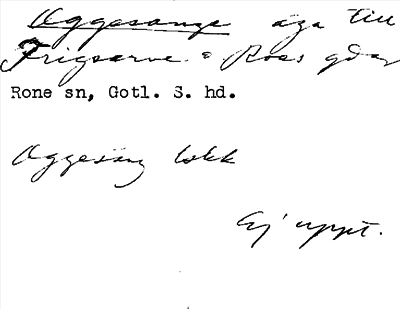 Aggesänge äga till
Frigsarve o Roes gdar
Rone sn, Gotl. S. hd.
Aggesäng lokk
Ej uppt.